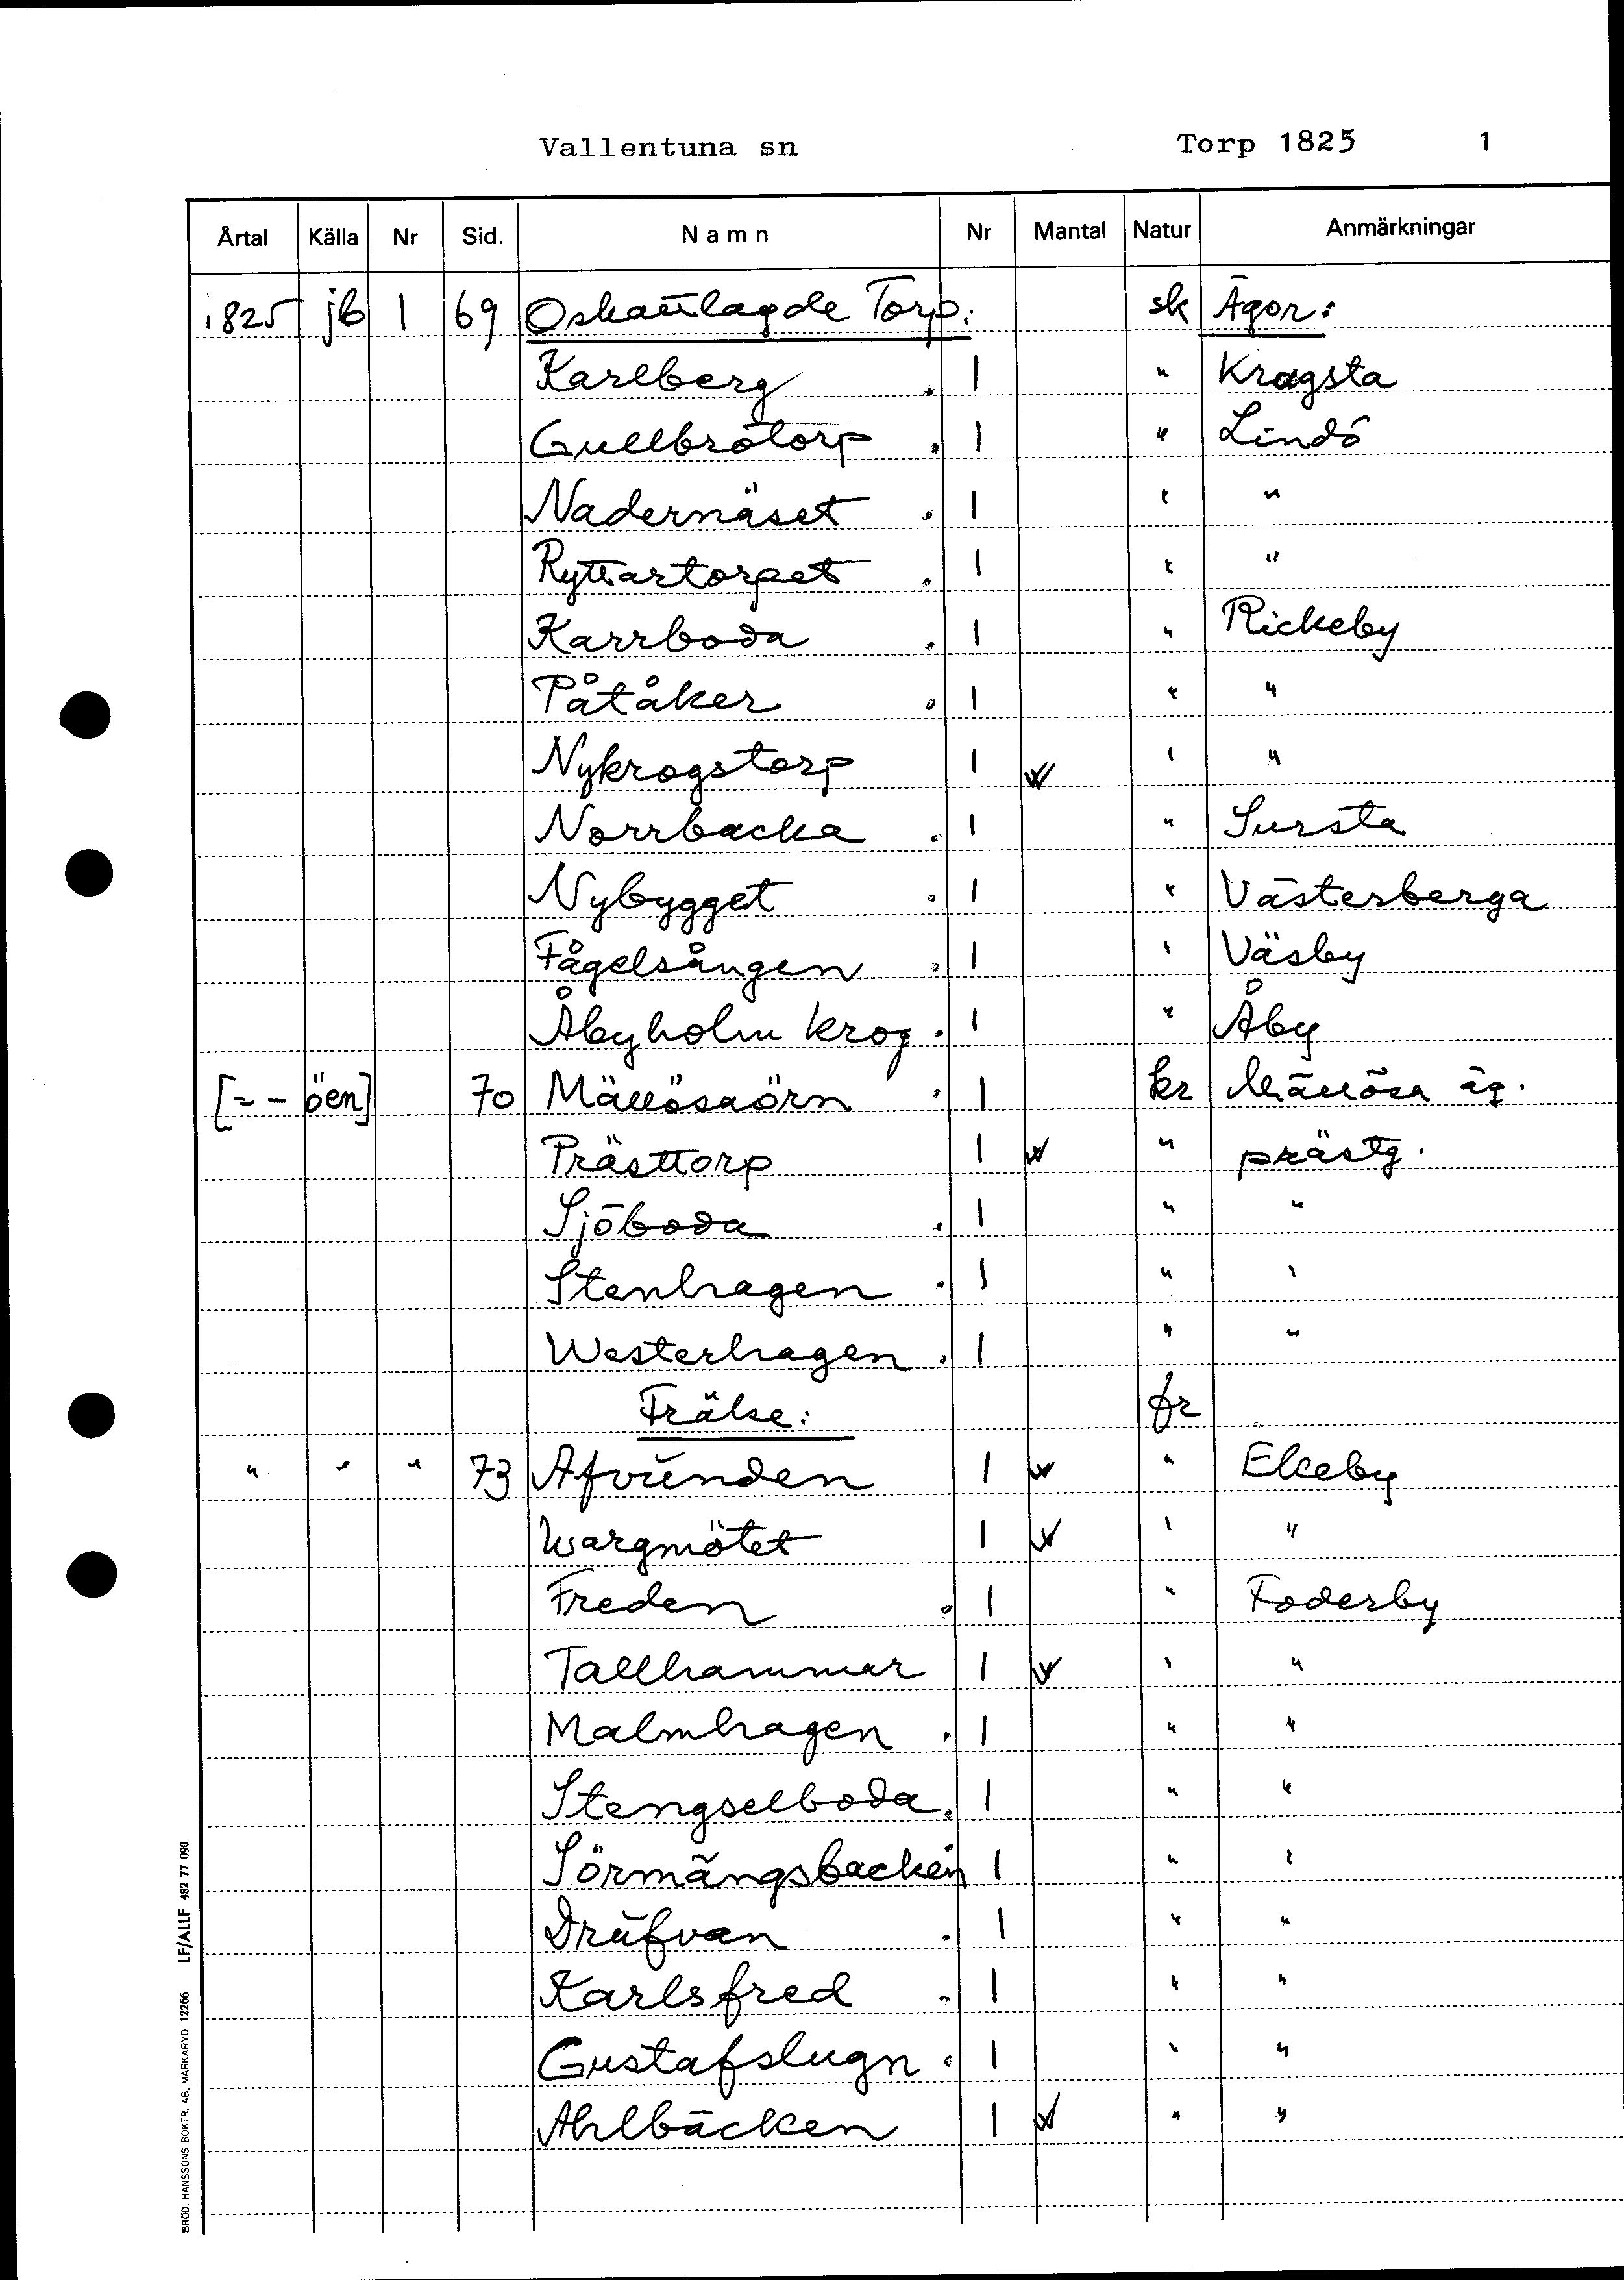 Vallentuna sn Torp 1825 1
Årtal Källa Nr Sid. Namn Nr Mantal Natur Anmärkningar
1825 jb 1 69 Oskattlagde Torp: sk Ägor:
Karlberg . 1 " Kragsta
Gullbrotorp . 1 " Lindö
Nadernäset . 1 " "
Ryttartorpet . 1 " "
Karrboda . 1 " Rickeby
Påtåker . 1 " "
Nykrogstorp 1 W " "
Norrbacka . 1 " Sursta
Nybygget . 1 " Västerberga
Fågelsången . 1 " Väsby
Åbyholm krog . 1 " Åby
[= - öen] 70 Mällösaörn . 1 kr Mällösa äg.
Prästtorp 1 W " prästg.
Sjöboda . 1 " "
Stenhagen . 1 " "
Westerhagen . 1 " "
Frälse: fr
" " " 73 Afvunden 1 W " Ekeby
Wargmötet 1 W " "
Freden . 1 " Foderby
Tallhammar 1 W " "
Malmhagen . 1 " "
Stengselboda . 1 " "
Sörmängsbacken 1 " "
Drufvan . 1 " "
Karlsfred . 1 " "
Gustafslugn . 1 " "
Ahlbäcken 1 W " "
BROD. HANSSONS BOKTR. AB, MARKARYD 12266 LF/ALLF 482 77 090